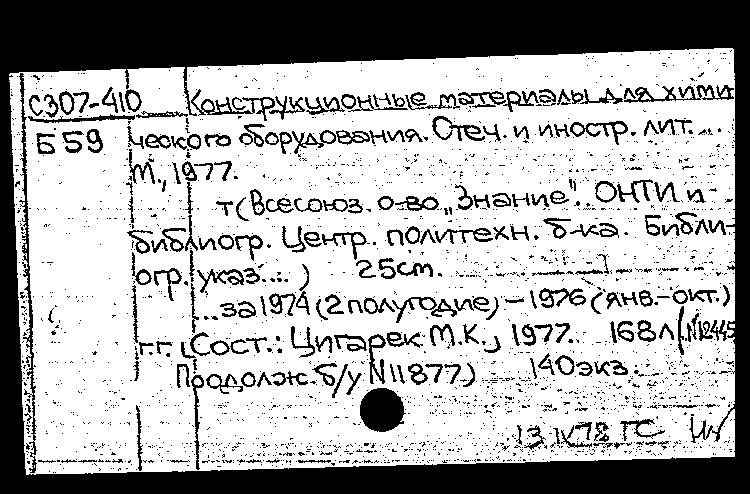 С307-410 Конструкционные материалы для хими
Б59 ческого оборудования. Отеч. и иностр. лит. ...
М., 1977.
т (Всесоюз. о-во „Знание". ОНТИ и
библиогр. Центр. политехн. б-ка. Библи-
огр. указ...) 25cm.
...за 1974 (2 полугодие) – 1976 (янв.-окт.)
г.г. (Сост.: Цигарек М.К., 1977. 168л (N12445
Продолж. б/у N11877) 140экз.
13 IV 78 ГС